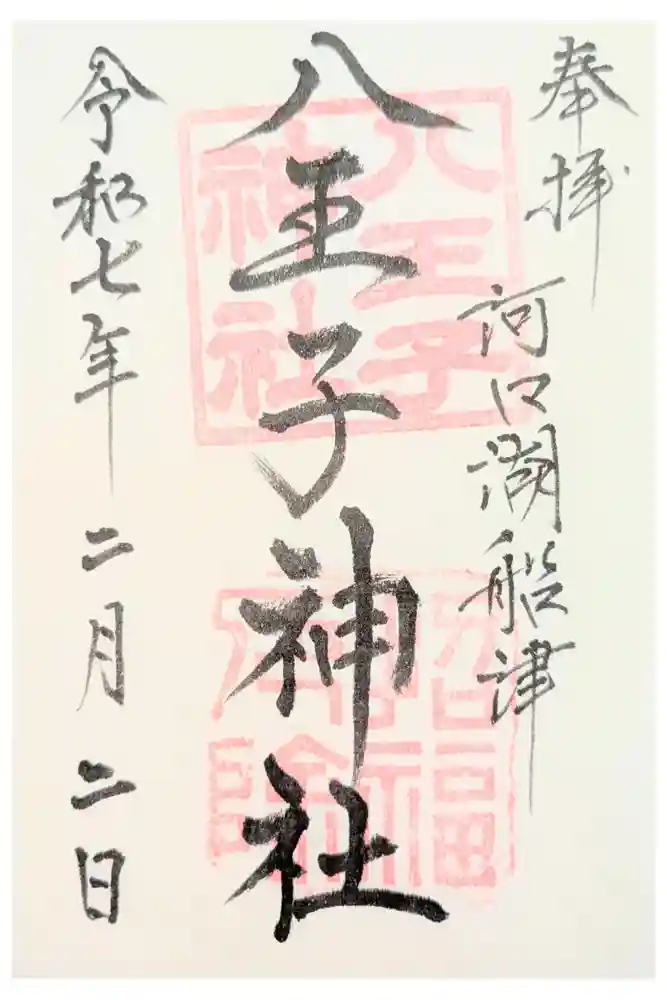 奉拝
河口湖船津
八王子神社
令和七年 二月二日
八王子
神社